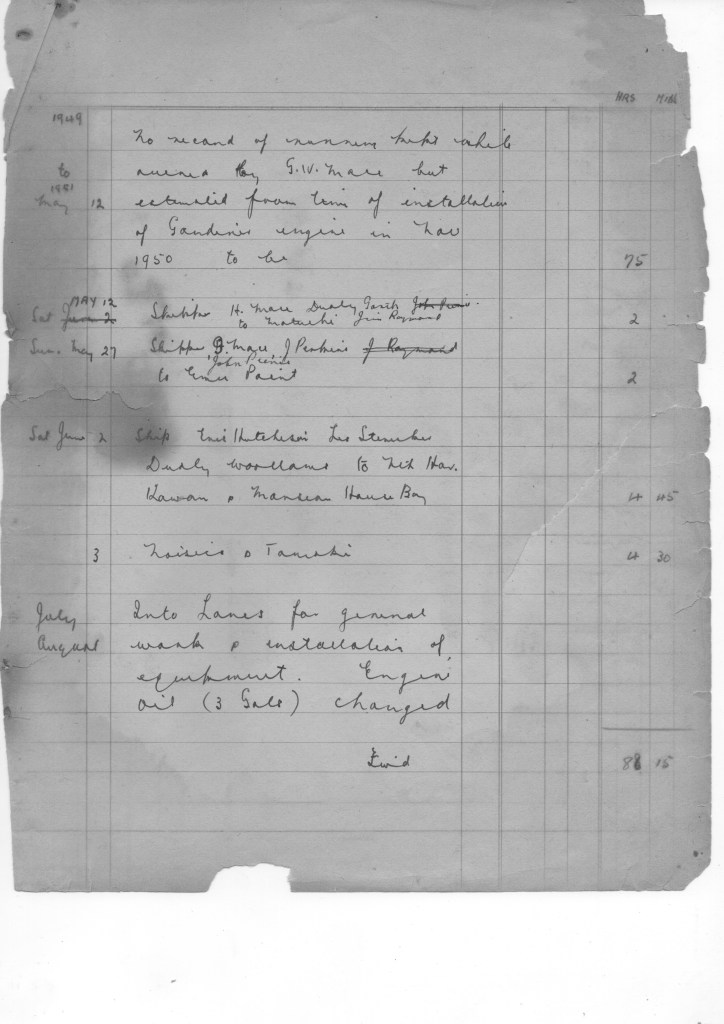 HRS MINS
1949 No record of running kept while
to owned by G.W. Mace but
1951
May 12 estimated from time of installation
of Gardiner engine in Nov
1950 to be 75
MAY 12
Sat June 2 Skipper H. Mace Dudly John
to Matachi Jim Raymond 2
Sun. May 27 Skipper G. Mace, J Perkins J Raymond
John
to Point 2
Sat June 2 Ship Hutcheson Les
Dudly Woollams to Nth Har.
Kawau & Mansion House Bay 4 45
3 Noises & Tamaki 4 30
July Into Lanes for general
August work & installation of
equipment. Engine
oil (3 Gals) changed
Fwd 88 15